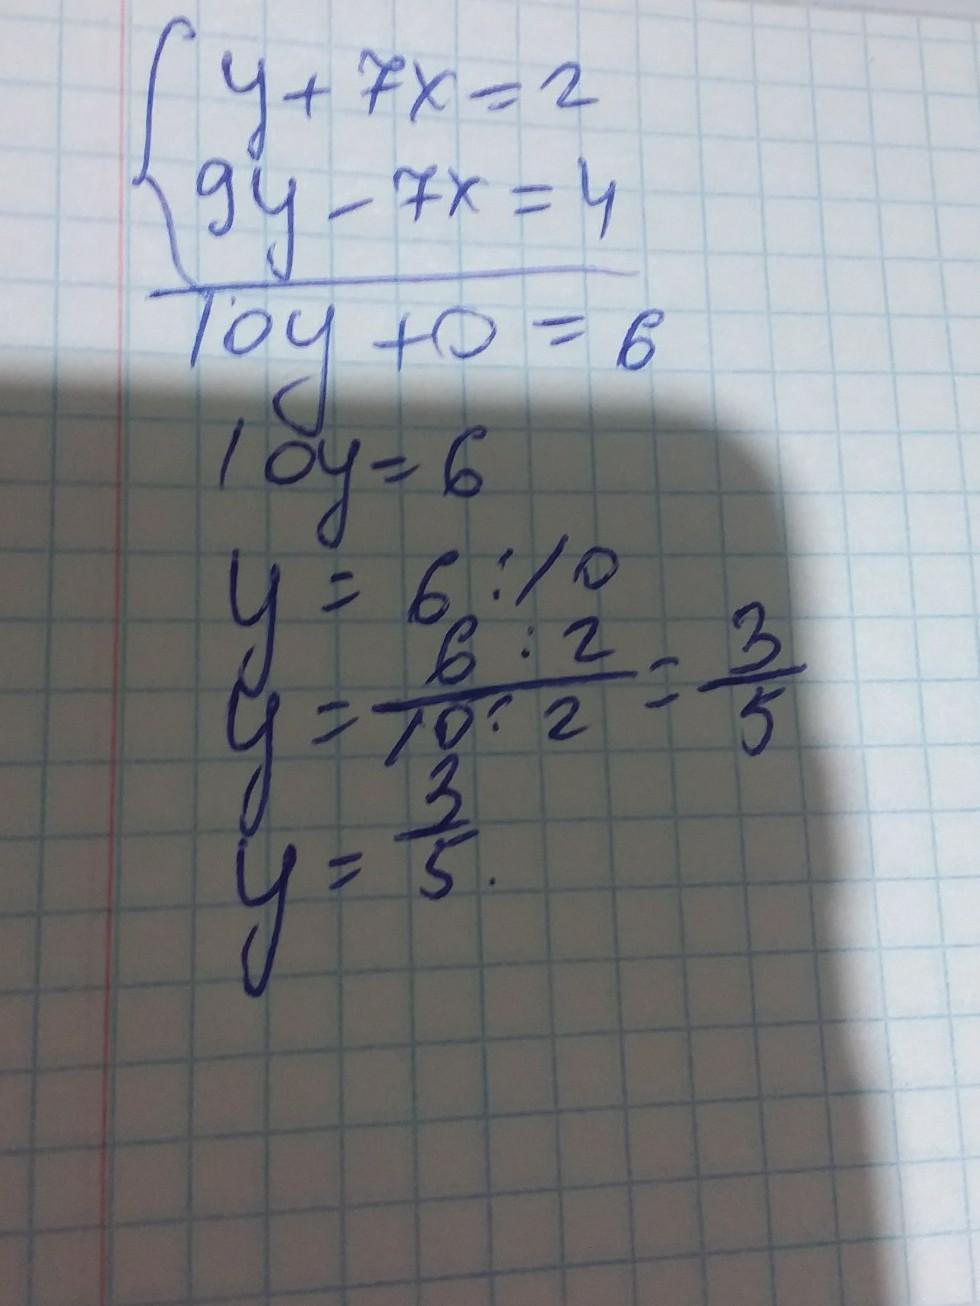 y + 7x = 2
9y - 7x = 4
10y + 0 = 6
10y = 6
y = 6 : 10
y = 6 : 2 / 10 : 2 = 3/5
y = 3/5.